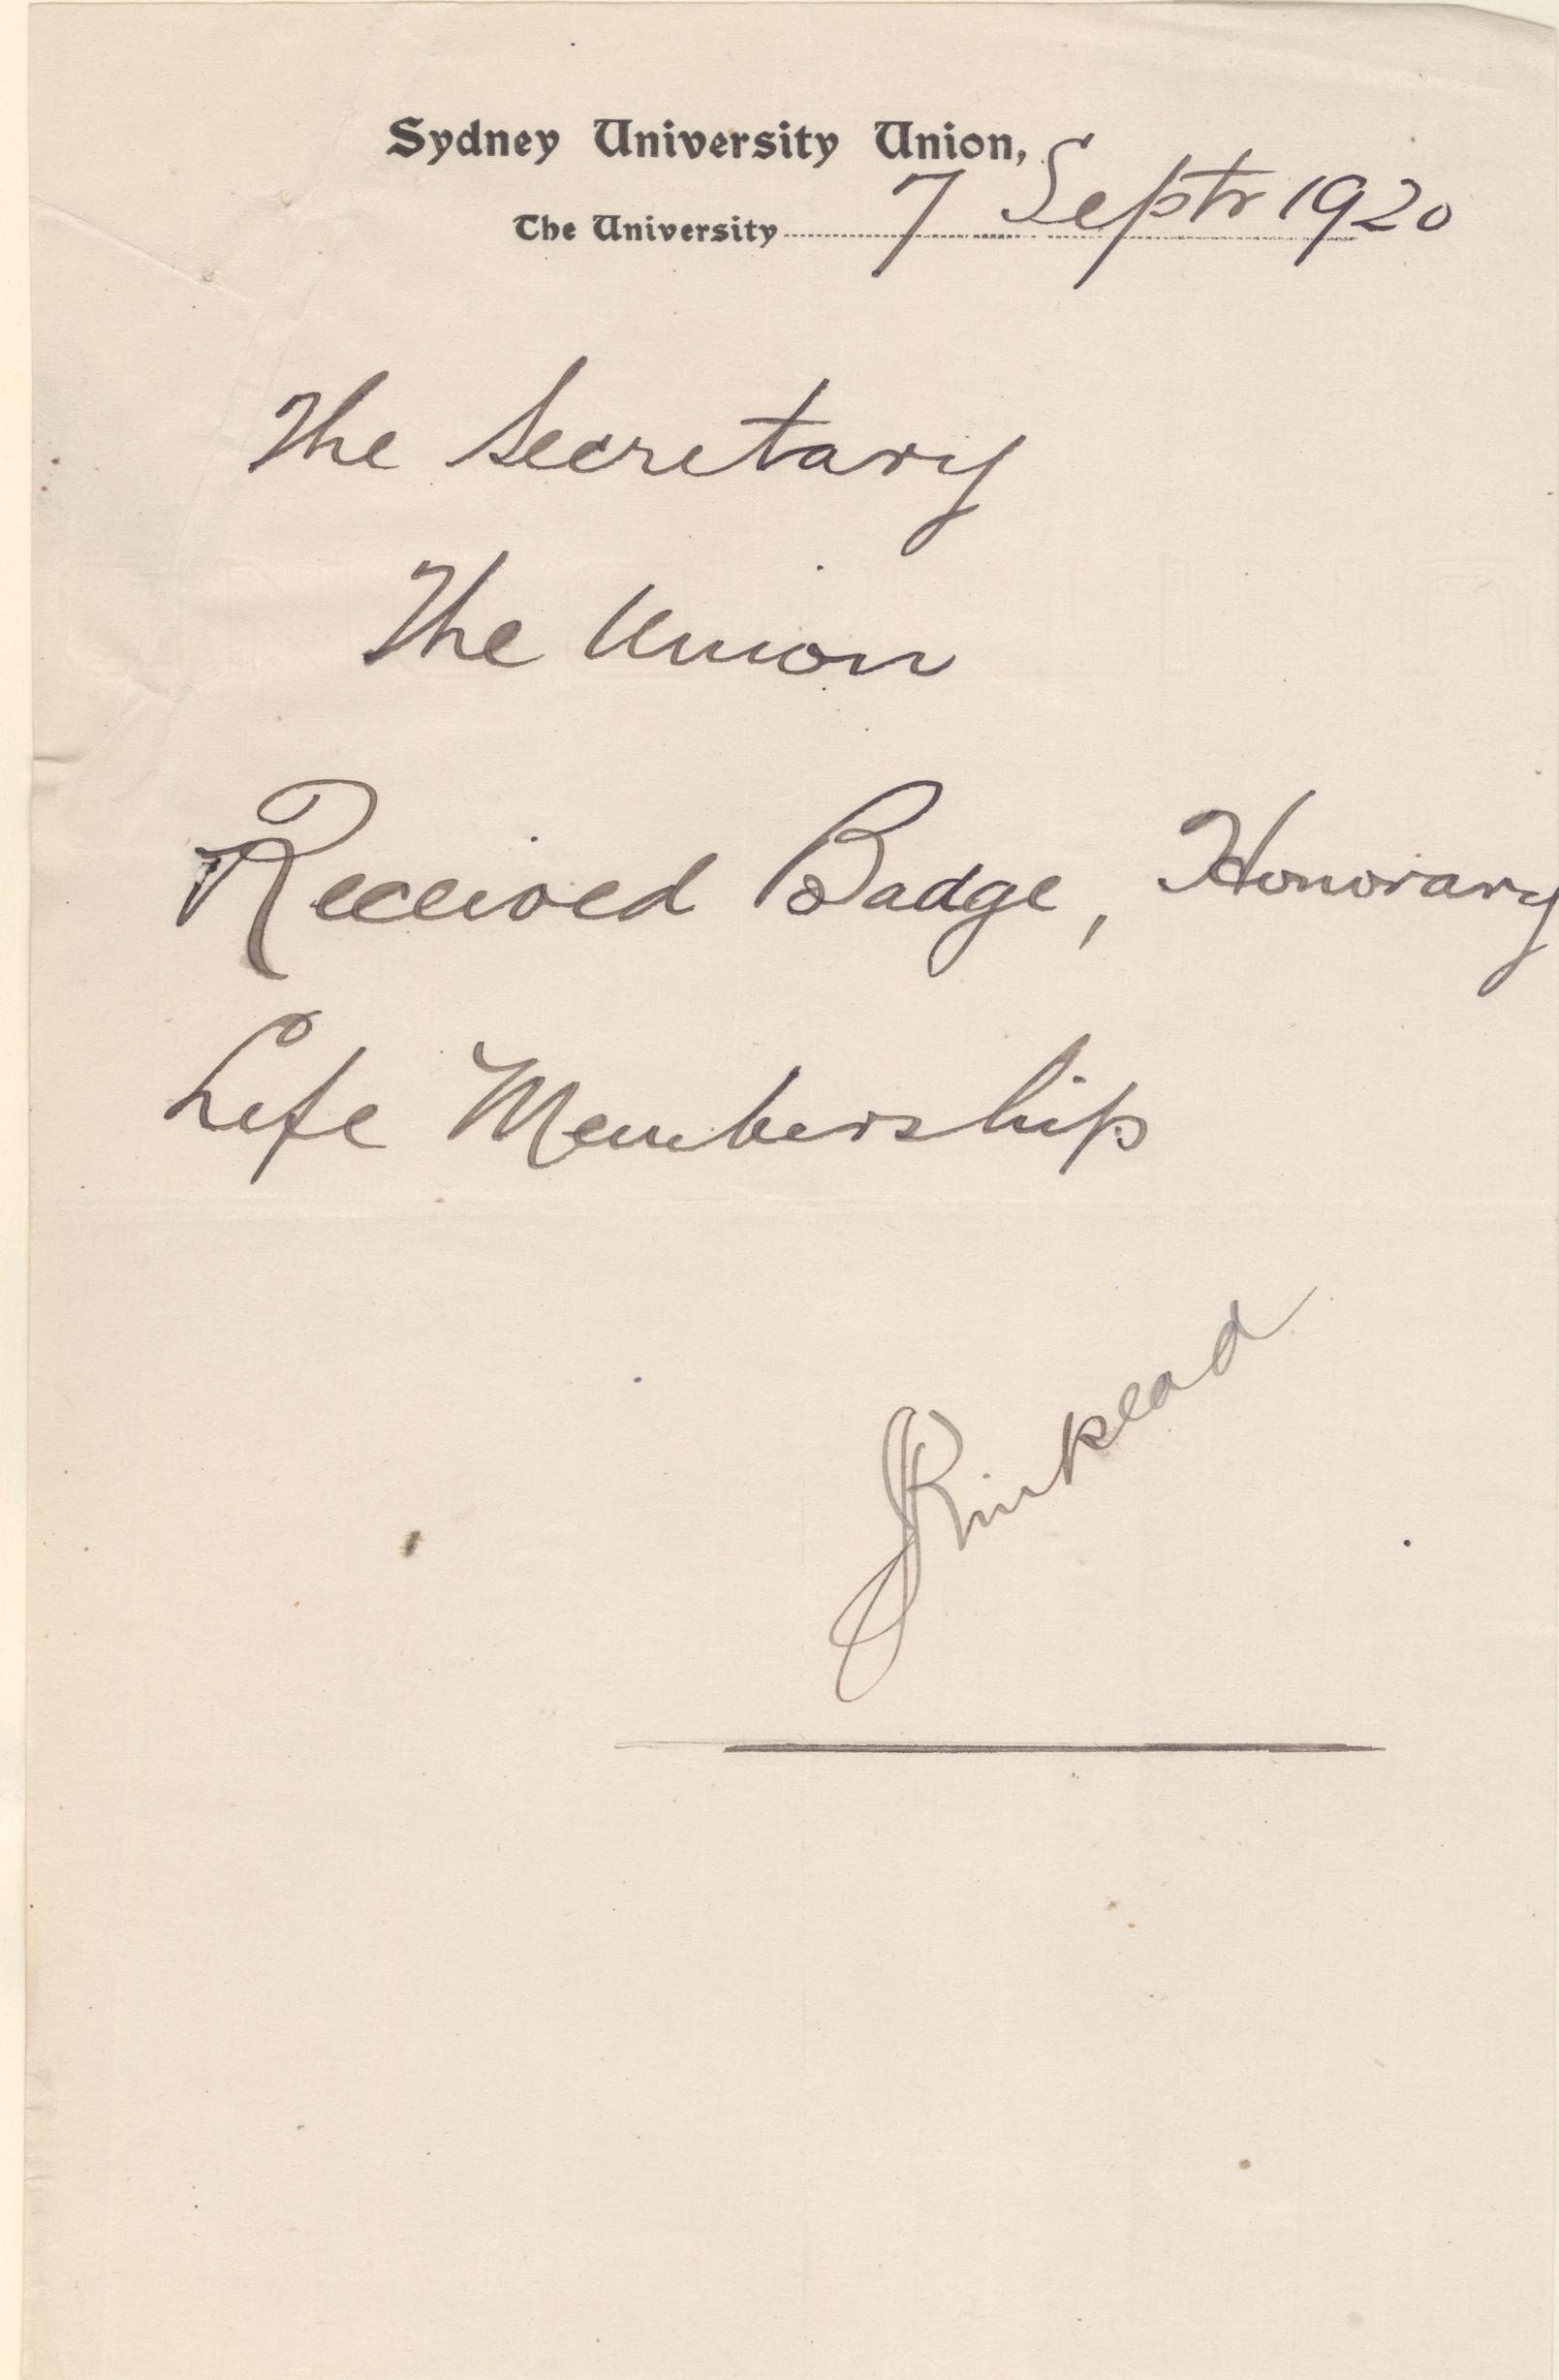 Sydney University Union,
The University 7 Septr 1920
The Secretary
The Union
Received Badge, Honorary
Life Membership
J Kinkead